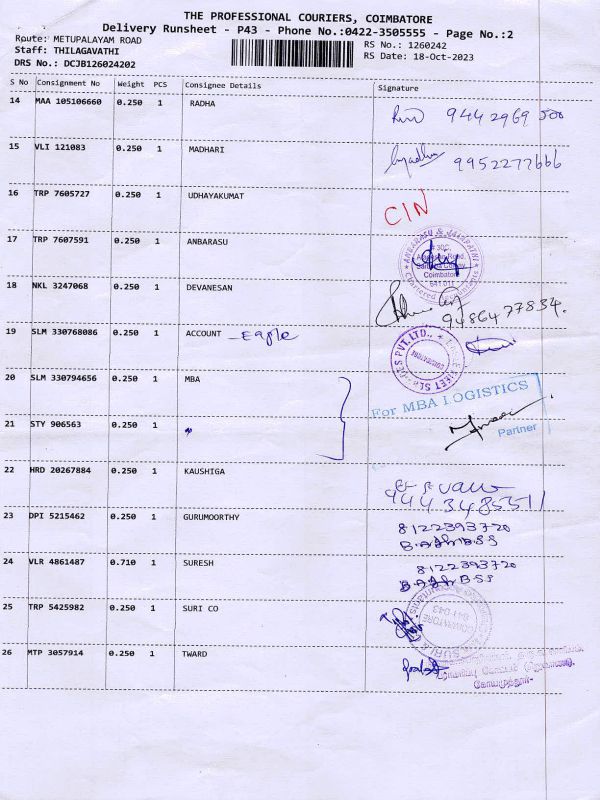 THE PROFESSIONAL COURIERS, COIMBATORE
Delivery Runsheet - P43 - Phone No.:0422-3505555 - Page No.:2
Route: METUPALAYAM ROAD
Staff: THILAGAVATHI
DRS No.: DCJB126024202
RS No.: 1260242
RS Date: 18-Oct-2023
S No Consignment No Weight PCS Consignee Details Signature
14 MAA 105106660 0.250 1 RADHA 9442969500
15 VLI 121083 0.250 1 MADHARI 9952277666
16 TRP 7605727 0.250 1 UDHAYAKUMAT CIN
17 TRP 7607591 0.250 1 ANBARASU
ANBARASU & JAIAPATHI
Coimbatore
641 011
18 NKL 3247068 0.250 1 DEVANESAN 9486477834.
19 SLM 330768086 0.250 1 ACCOUNT - Eagle
PVT.LTD.,
20 SLM 330794656 0.250 1 MBA
For MBA LOGISTICS
Partner
21 STY 906563 0.250 1
22 HRD 20267884 0.250 1 KAUSHIGA
9443485511
23 DPI 5215462 0.250 1 GURUMOORTHY 8122393720
24 VLR 4861487 0.710 1 SURESH 8122393720
25 TRP 5425982 0.250 1 SURI CO
641 043
26 MTP 3057914 0.250 1 TWARD